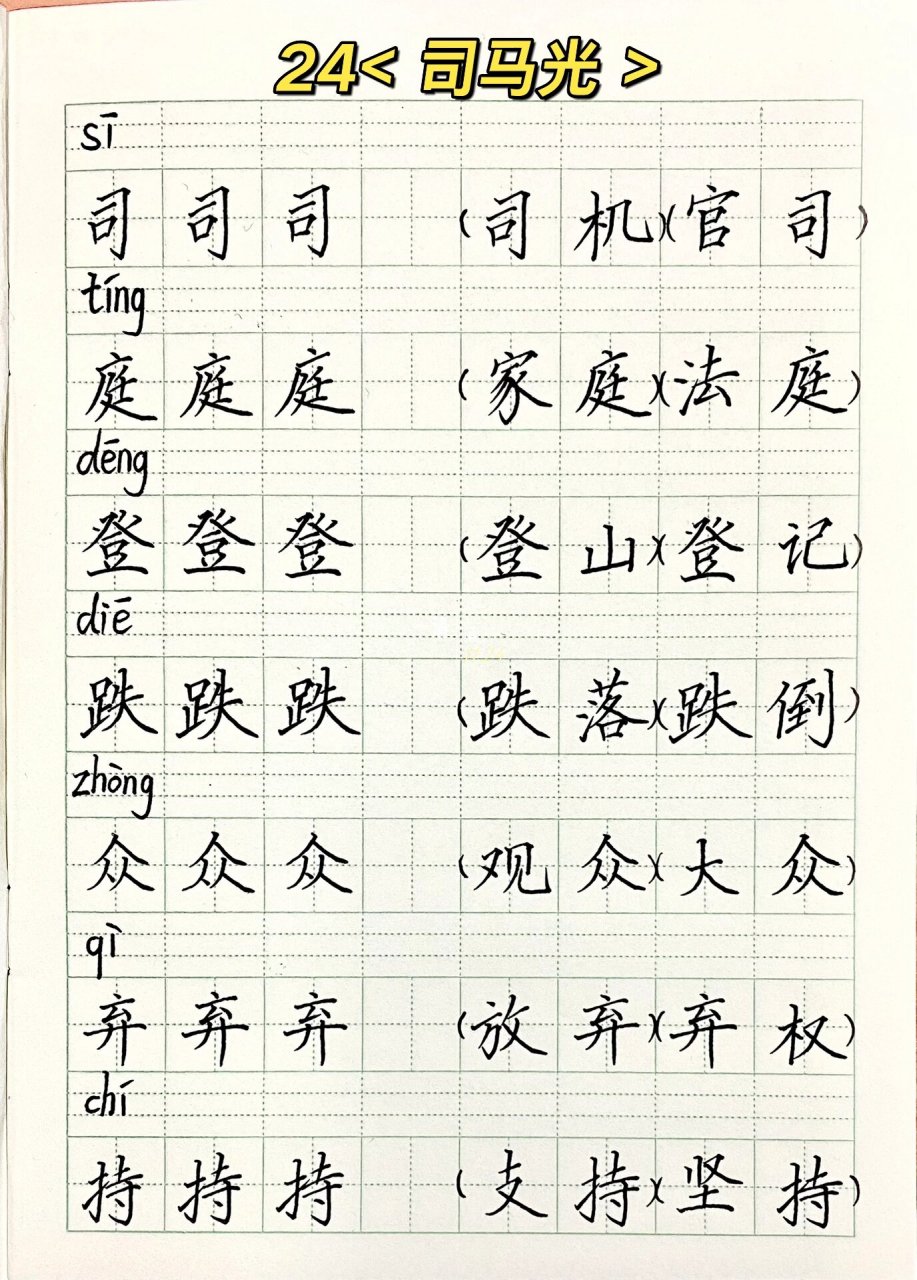 24< 司马光 >
sī
司 司 司 (司 机)(官 司)
tíng
庭 庭 庭 (家 庭)(法 庭)
dēng
登 登 登 (登 山)(登 记)
diē
跌 跌 跌 (跌 落)(跌 倒)
zhòng
众 众 众 (观 众)(大 众)
qì
弃 弃 弃 (放 弃)(弃 权)
chí
持 持 持 (支 持)(坚 持)